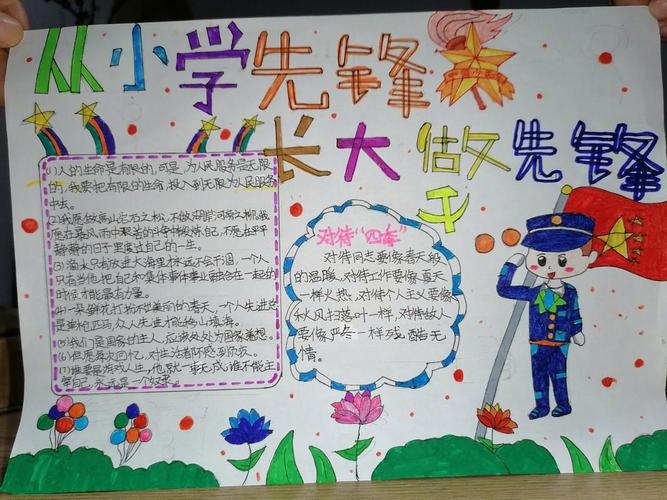 从小学先锋
长大做先锋
(1)人的生命是有限的,可是,为人民服务是无限
的,我要把有限的生命,投入到无限为人民服务
中去。
(2)我愿做高山岩石之松,不做湖岸河旁之柳。我
愿在暴风雨中 自己,不愿在平平
静静的日子里度过自己的一生。
(3)滴水只有放进大海里才永远不会干涸,一个人
只有当他把自己和集体事业融合在一起的
时候才能最有力量。
(4)一朵鲜花打扮不出美丽的春天,一个人先进总
是单枪匹马,众人先进才能移山填海。
(5)我们是国家的主人,应该处处为国家着想。
(6)但愿每次回忆,对生活都不感到负疚。
(7)谁要是游戏人生,他就一事无成,谁不能主
宰自己,永远是一个奴隶。
对待“四季”
对待同志要像春天般
的温暖,对待工作要像夏天
一样火热,对待个人主义要像
秋风扫落叶一样,对待敌人
要像严冬一样残酷无
情。